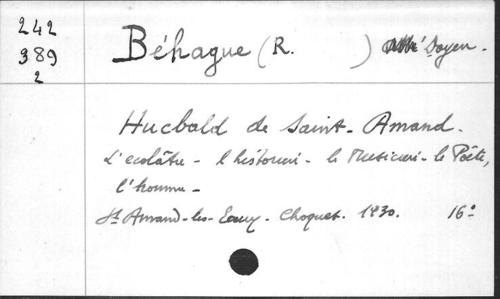 242
989
2
Béhague (R. ) Doyen.
Hucbald de Saint-Amand.
L'ecolâtre - l'historien - le Musicien - le Poête,
l'homme -
St Amand-les-Eaux. Choquet. 1930. 16°